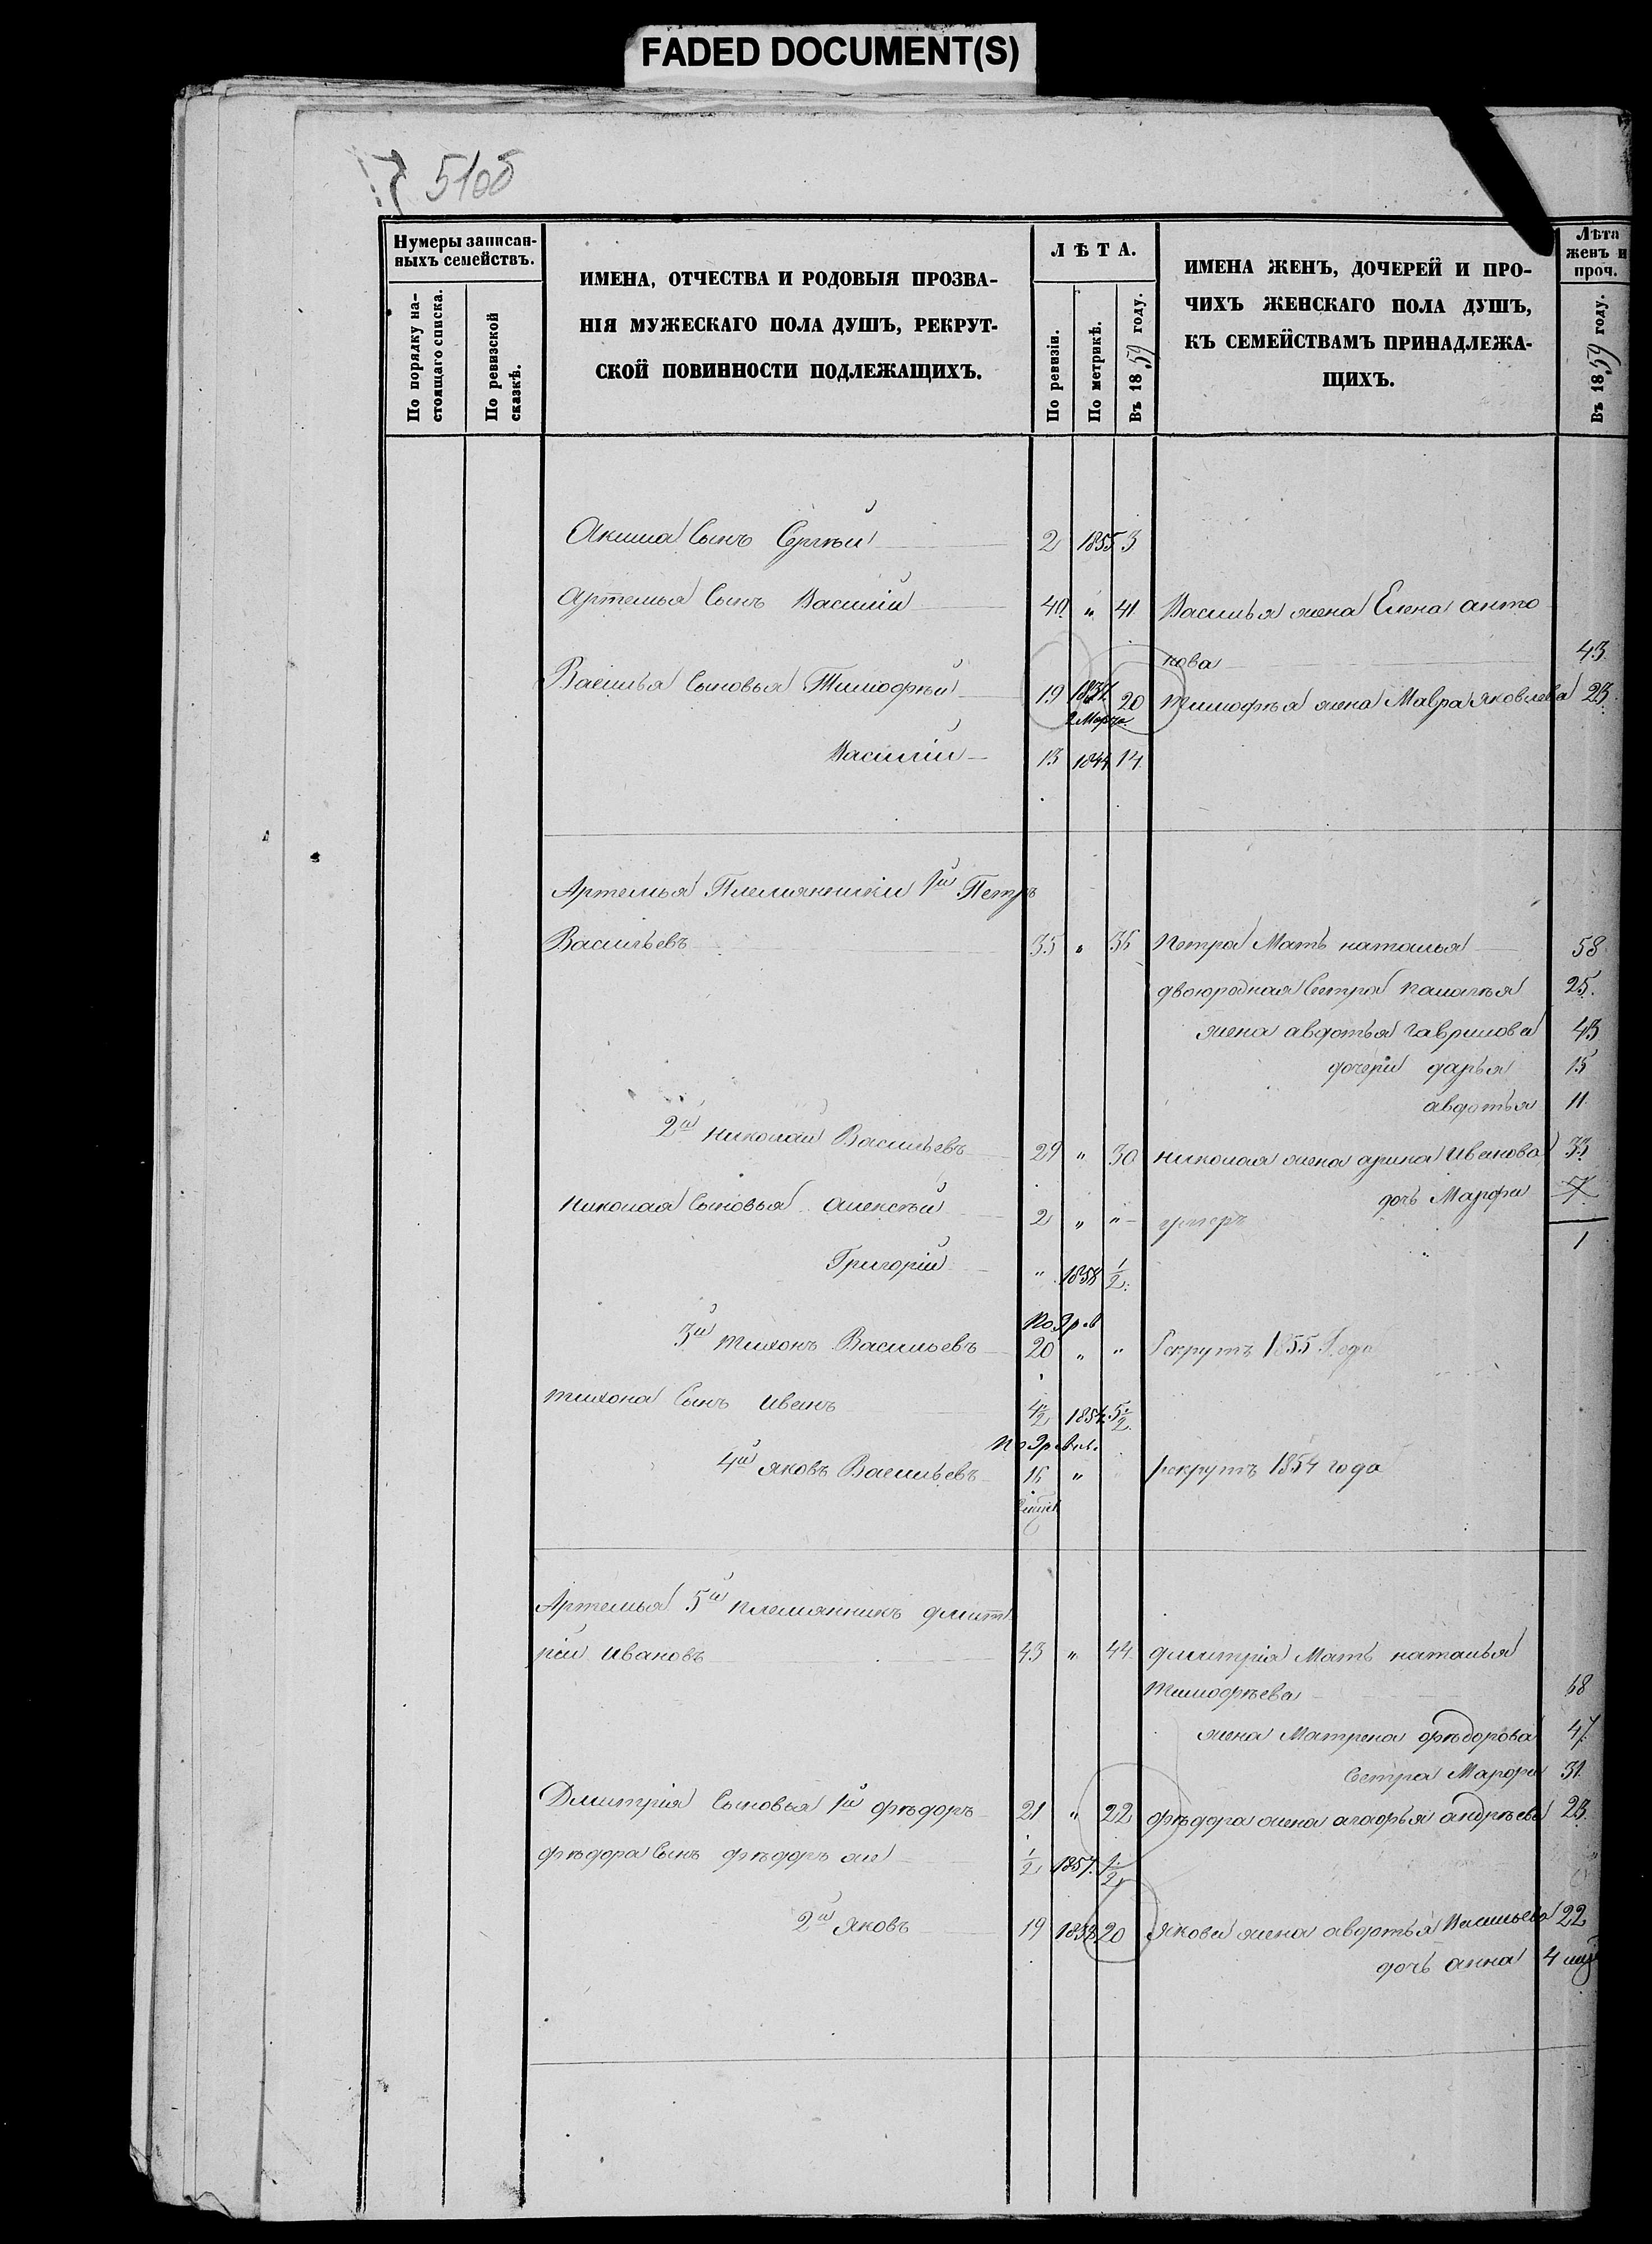 FADED DOCUMENT(S)
Нумеры записан-
ныхъ семействъ.
По порядку на-
стоящаго списка.
По ревизской
сказкѣ.
ИМЕНА, ОТЧЕСТВА И РОДОВЫЯ ПРОЗВА-
НІЯ МУЖЕСКАГО ПОЛА ДУШЪ, РЕКРУТ-
СКОЙ ПОВИННОСТИ ПОДЛЕЖАЩИХЪ.
ЛѢТА.
По ревизіи.
По метрикѣ.
Въ 1859 году.
ИМЕНА ЖЕНЪ, ДОЧЕРЕЙ И ПРО-
ЧИХЪ ЖЕНСКАГО ПОЛА ДУШЪ,
КЪ СЕМЕЙСТВАМЪ ПРИНАДЛЕЖА-
ЩИХЪ.
Лѣта
женъ и
проч.
Въ 1859 году.
Акима Сынъ Сергѣй 2 1855 3
Артемья Сынъ Василій 40 " 41 Василья жена Елена анто
нова 43
Василья Сыновья Тимофѣй 19 20 Тимофѣя жена Мавра Яковлева 23
2 Марта
Василій 13 1844 14
Артемья Племянники 1й Петръ
Васильевъ 35 " 36 Петра Мать наталья 58
двоюродная Сестра пелагѣя 25.
жена авдотья гаврилова 43
дочери дарья 15
авдотья 11
2й николай Васильевъ 29 " 30 николая жена арина Иванова 33
дочь Марфа 7
1
Николая Сыновья алексѣй 2 " " умеръ
Григорій " 1858 1/2
3й тихонъ Васильевъ 20 " " Рекрутъ 1855 Года
тихона Сынъ иванъ 4 1/2 1854 5 1/2
4й яковъ Васильевъ 16 " рекрутъ 1854 года
Артемья 5й племянникъ дмит
рій ивановъ 43 " 44 дмитрія Мать наталья
тимофѣева 68
жена Матрена фѣдорова 47
Сестра Марфа 31
Дмитрія Сыновья 1й фѣдоръ 21 " 22 фѣдора жена агафья андрѣева 23
фѣдора Сынъ фѣдоръ же 1/2 1857 1 1/2
2й яковъ 19 1838 20 якова жена авдотья Васильева 22
дочь анна